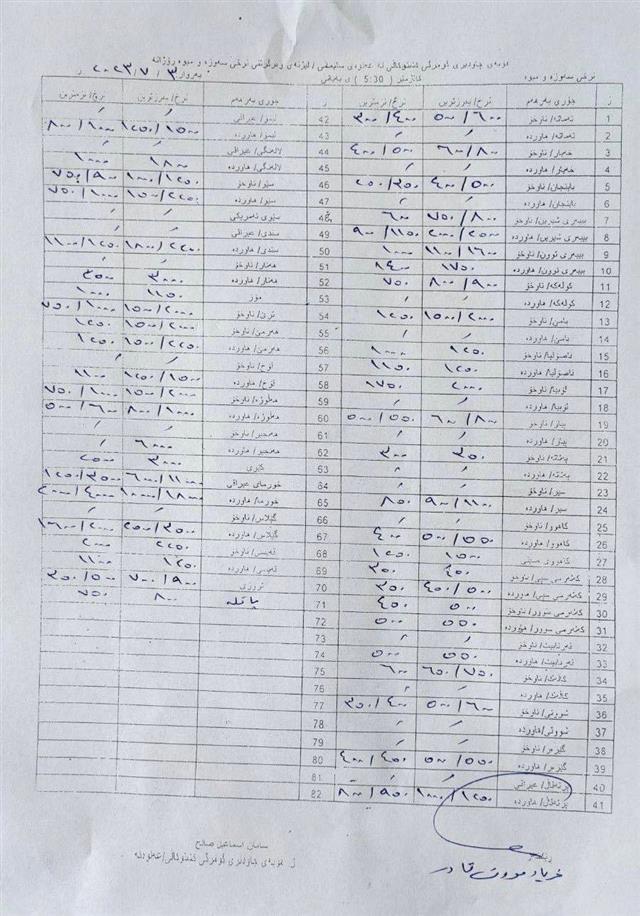 نرخی سەوزە و میوە
بەروار ٣ / ٧ / ٢٠٢٣
کاتژمێر ( 5:30 ) ی بەیانی
ژ جۆری بەرهەم نرخ/بەرزترین نرخ/نزمترین ژ جۆری بەرهەم نرخ/بەرزترین نرخ/نزمترین
1 تەماتە/ ناوخۆ ٥٠٠/٦٠٠ ٣٠٠/٤٠٠ 42 لیمۆ/ عیراقی
2 تەماتە/ هاوردە 43 لیمۆ/ هاوردە ١٢٥٠/١٥٠٠ ٨٠٠/١٠٠٠
3 خەیار/ ناوخۆ ٦٠٠/٨٠٠ ٤٠٠/٥٠٠ 44 لالەنگی/ عیراقی
4 خەیار/ هاوردە 45 لالەنگی/ هاوردە ١٨٠٠ ١٠٠٠
5 باینجان/ ناوخۆ ٤٠٠/٥٠٠ ٢٥٠/٣٥٠ 46 سێو/ ناوخۆ ١٠٠٠/١٢٥٠ ٧٥٠/٩٠٠
6 باینجان/ هاوردە 47 سێو/ هاوردە ١٥٠٠/٢٢٥٠ ٧٥٠/١٠٠٠
7 بیبەری شیرین/ ناوخۆ ٧٥٠/٨٠٠ ٦٠٠ 48 سێوی ئەمریکی
8 بیبەری شیرین/ هاوردە ٢٠٠٠/٢٥٠٠ ٩٠٠/١١٥٠ 49 سندی/ عیراقی
9 بیبەری توون/ ناوخۆ ١١٠٠/١٦٠٠ ١٠٠٠ 50 سندی/ هاوردە ١٨٠٠/٢٢٥٠ ١١٠٠/١٢٥٠
10 بیبەری توون/ هاوردە ١٧٥٠ 51 هەنار/ ناوخۆ
11 کولەکە/ ناوخۆ ٨٠٠/٩٠٠ ٧٥٠ 52 هەنار/ هاوردە ٣٠٠٠ ٢٥٠٠
12 کولەکە/ هاوردە 53 مۆز ١١٥٠ ١٠٠٠
13 بامێ/ ناوخۆ ١٥٠٠/٢٠٠٠ ١٢٥٠ 54 ترێ/ ناوخۆ ١٥٠٠/٢٠٠٠ ٧٥٠/١٠٠٠
14 بامێ/ هاوردە 55 هەرمێ/ ناوخۆ ١٥٠٠/٢٠٠٠ ١٢٥٠
15 فاصولیا/ ناوخۆ ١٢٥٠ ١٠٠٠ 56 هەرمێ/ هاوردە ١٥٠٠/٢٢٥٠ ١٢٥٠
16 فاصولیا/ هاوردە ١٢٥٠ ١١٥٠ 57 خۆخ/ ناوخۆ
17 لۆبیا/ ناوخۆ ٢٠٠٠ ١٧٥٠ 58 خۆخ/ هاوردە ١٢٥٠/١٥٠٠ ١١٠٠
18 لۆبیا/ هاوردە 59 هەڵوژە/ ناوخۆ ١٥٠٠/٢٠٠٠ ٧٥٠/١٠٠٠
19 پیاز/ ناوخۆ ٦٠٠/٨٠٠ ٥٠٠/٥٥٠ 60 هەڵوژە/ هاوردە ٨٠٠/١٠٠٠ ٥٠٠/٦٠٠
20 پیاز/ هاوردە 61 هەنجیر/ ناوخۆ
21 پەتاتە/ ناوخۆ ٣٥٠ ٣٠٠ 62 هەنجیر/ هاوردە ٦٠٠٠
22 پەتاتە/ هاوردە 63 کیوی ٣٠٠٠ ٢٥٠٠
23 سیر/ ناوخۆ 64 خورمای عیراقی ٦٠٠٠/١١٠٠٠ ١٢٥٠/٣٥٠٠
24 سیر/ هاوردە ٩٠٠/١١٠٠ ٨٥٠ 65 خورما/ هاوردە ١٠٠٠٠/١٨٠٠٠ ٢٠٠٠/٤٠٠٠
25 کاهوو/ ناوخۆ 66 گێلاس/ ناوخۆ
26 کاهوو/ هاوردە ٥٠٠/٥٥٠ ٤٠٠ 67 گێلاس/ هاوردە ٢٥٠٠/٣٥٠٠ ١٦٠٠/٢٠٠٠
27 کاهووی ١٥٠٠ ١٢٥٠ 68 قەیسی/ ناوخۆ ٢٢٥٠ ٢٠٠٠
28 کەلەرمی سپی/ ناوخۆ ٤٥٠ ٣٥٠ 69 قەیسی/ هاوردە ١٢٥٠ ١١٠٠
29 کەلەرمی سپی/ هاوردە ٤٥٠/٥٠٠ ٣٥٠ 70 ترۆزی ٧٠٠/٩٠٠ ٣٥٠/٥٠٠
30 کەلەرمی سوور/ ناوخۆ ٥٠٠ ٤٥٠ 71 پاقلە ٨٠٠ ٧٥٠
31 کەلەرمی سوور/ هاوردە ٥٥٠ ٥٠٠ 72
32 قەرنابیت/ ناوخۆ 73
33 قەرنابیت/ هاوردە ٥٥٠ ٥٠٠ 74
34 کاڵەک/ ناوخۆ ٦٥٠/٧٥٠ ٦٠٠ 75
35 کاڵەک/ هاوردە 76
36 شووتی/ ناوخۆ ٥٠٠/٦٠٠ ٣٥٠/٤٠٠ 77
37 شووتی/ هاوردە 78
38 گێزەر/ ناوخۆ 79
39 گێزەر/ هاوردە ٥٠٠/٥٥٠ ٤٠٠/٤٥٠ 80
40 پرتەقاڵ/ عیراقی 81
41 پرتەقاڵ/ هاوردە ١٠٠٠/١٢٥٠ ٨٠٠/٩٥٠ 82
سامان اسماعیل صالح